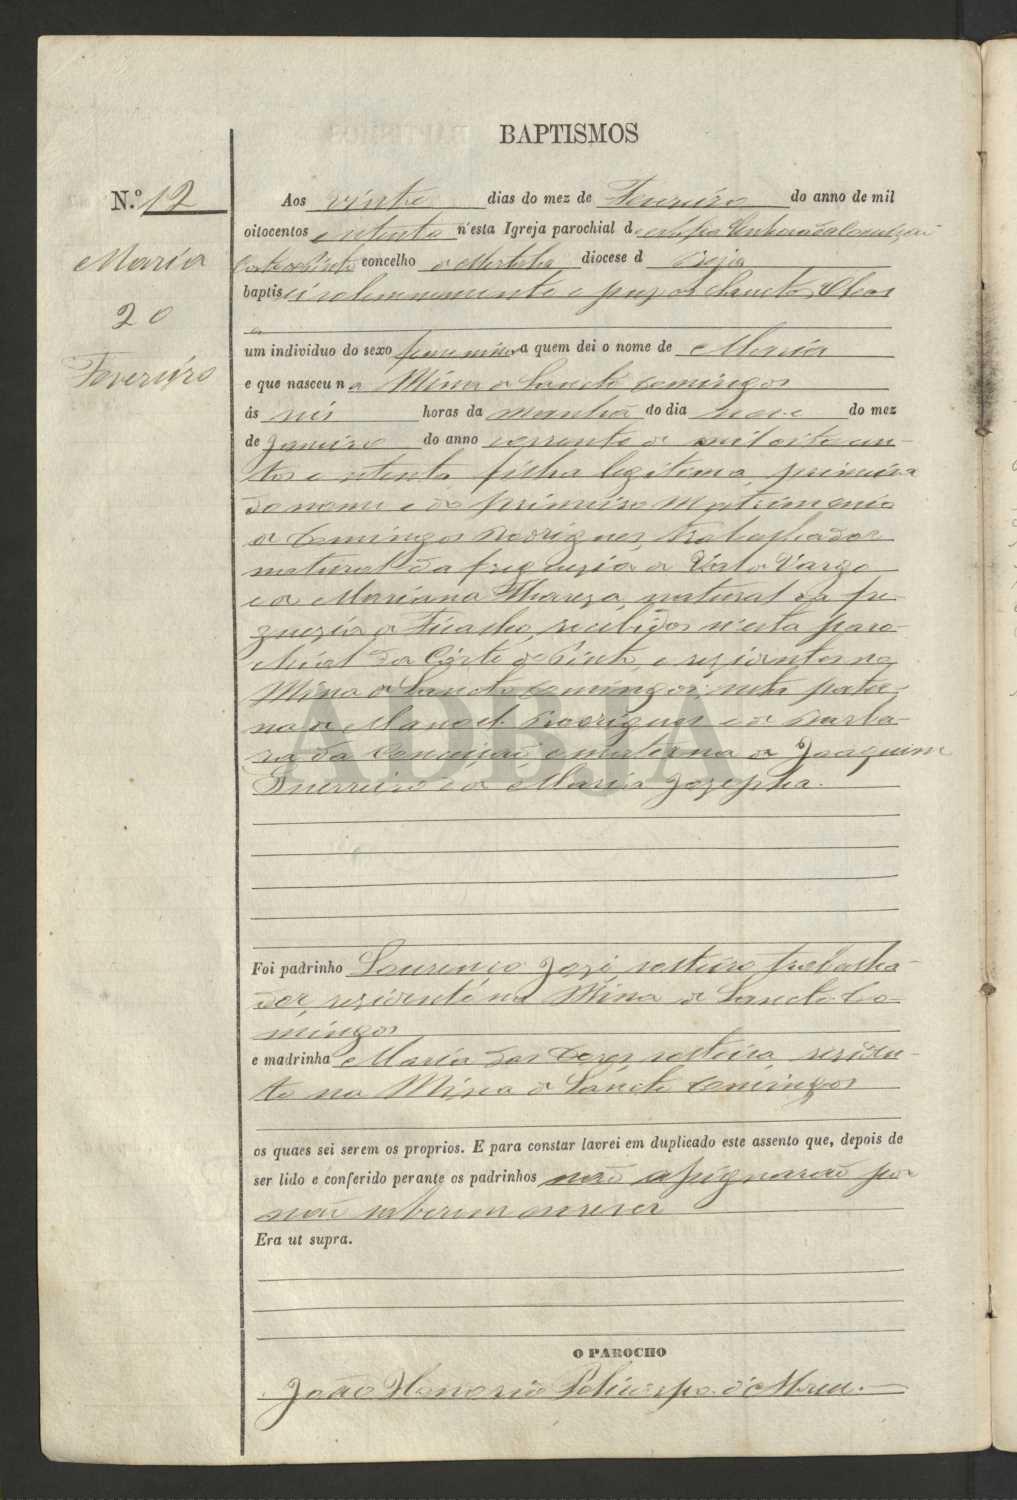 BAPTISMOS
N.º 12
Maria
20
Fevereiro
Aos vinte dias do mez de Fevereiro do anno de mil
oitocentos e setenta n'esta Igreja parochial de Nossa Senhora da Conceição
Corte do Pinto concelho de Mertola diocese de Beja
baptisei solemnemente e puz os Sanctos Oleos
um individuo do sexo femenino a quem dei o nome de Maria
e que nasceu na Mina de Sancto Domingos
ás seis horas da manhã do dia nove do mez
de Janeiro do anno corrente de mil oito cen-
tos e setenta filha legitima, primeira
do nome e do primeiro Matrimonio
de Domingos Rodrigues, trabalhador
natural da freguezia de Val de Vargo
e de Mariana Thereza, natural da fre-
guezia de Ficalho, recebidos n'esta paro-
chial da Côrte do Pinto, e rezidentes na
Mina de Sancto Domingos; neta pater-
na de Manoel Rodrigues e de Barba-
ra da Conceição, e materna de Joaquim
Guerreiro e de Maria Jozepha.
ADBJA
Foi padrinho Lourenço Jozé, solteiro, trabalha-
dor, rezidente na Mina de Sancto Do-
mingos
e madrinha Maria das Dores solteira, reziden-
te na Mina de Sancto Domingos
os quaes sei serem os proprios. E para constar lavrei em duplicado este assento que, depois de
ser lido e conferido perante os padrinhos não assignarão por
não saberem escrever
Era ut supra.
O PAROCHO
João Honorio Policarpo d'Abreu.